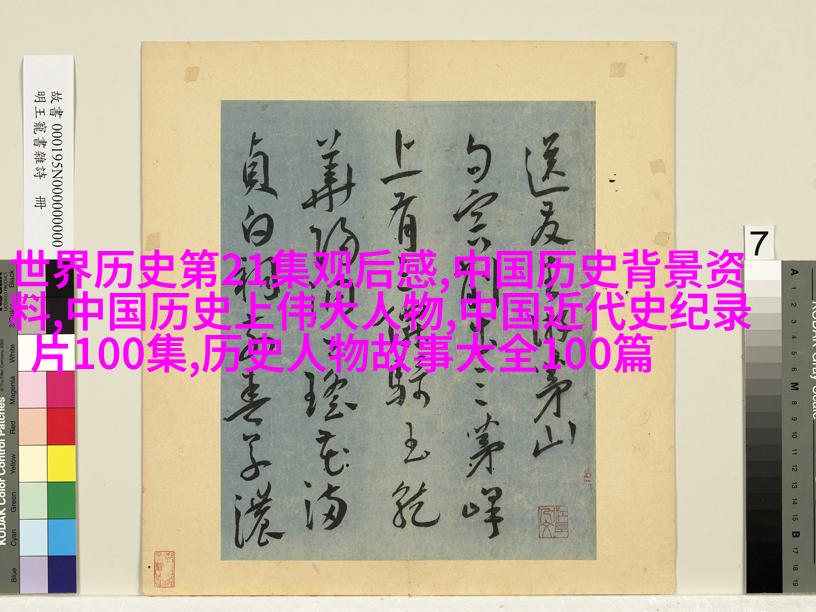 世界历史第21集观后感,中国历史背景资
料,中国历史上伟大人物,中国近代史纪录
片100集,历史人物故事大全100篇
故書 000195N000000000
明王寵書雜詩 冊
7
送友 游茅山
句容 三茅峰
上有 騎玉龍
華陽 瑤花滿
貞白祠 春草濃
KODAK Color Control Patches
Blue
Cyan
Green
Yellow
Red
Magenta
A
1
2
3
4
5
6
M
8
9
10
11
12
13
14
15
B
17
18
19